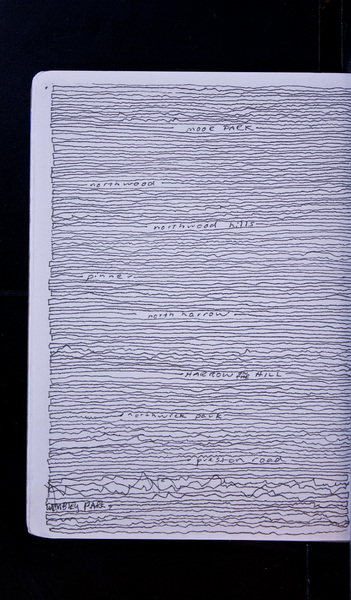 MOOR PARK
northwood
northwood hills
pinner
north harrow
HARROW HILL
northwick park
preston road
WEMBLEY PARK